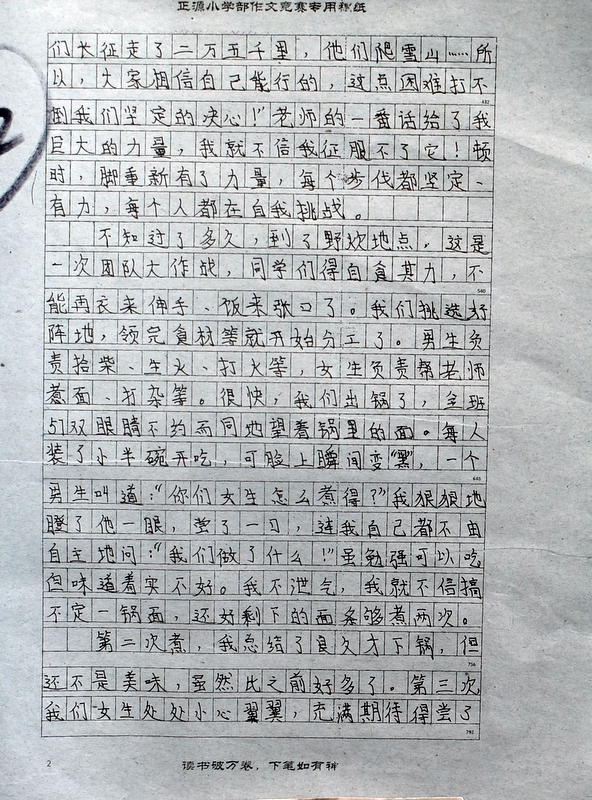 正源小学部作文竞赛专用稿纸
们长征走了二万五千里，他们爬雪山……所
以，大家相信自己能行的，这点困难打不
432
倒我们坚定的决心！”老师的一番话给了我
巨大的力量，我就不信我征服不了它！顿
时，脚重新有了力量，每个步伐都坚定、
有力，每个人都在自我挑战。
不知过了多久，到了野炊地点。这是
一次团队大作战，同学们得自食其力，不
540
能再衣来伸手、饭来张口了。我们挑选好
阵地，领完食材等就开始分工了。男生负
责拾柴、生火、打火等，女生负责帮老师
煮面、打杂等。很快，我们出锅了，全班
51双眼睛不约而同地望着锅里的面。每人
装了小半碗开吃，可脸上瞬间变“黑”，一个
648
男生叫道：“你们女生怎么煮得？”我狠狠地
瞪了他一眼，尝了一口，连我自己都不由
自主地问：“我们做了什么！”虽勉强可以吃
但味道着实不好。我不泄气，我就不信搞
不定一锅面，还好剩下的面条够煮两次。
第二次煮，我总结了良久才下锅，但
756
还不是美味，虽然比之前好多了。第三次
我们女生处处小心翼翼，充满期待得尝了
792
2
读书破万卷，下笔如有神